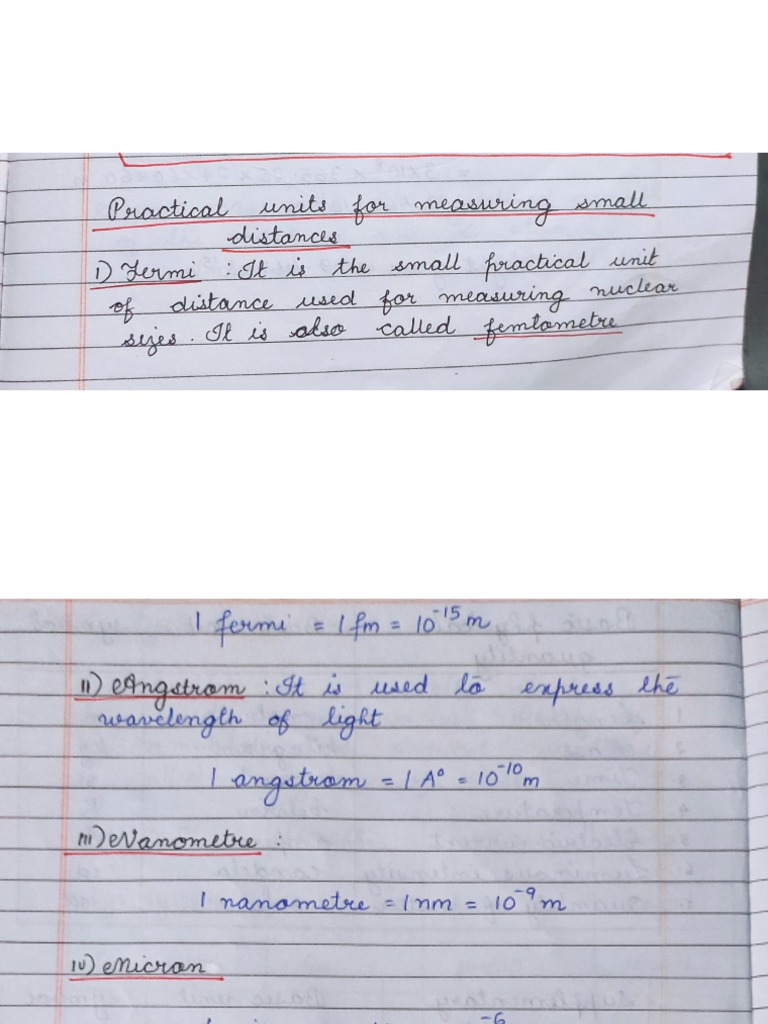 Practical units for measuring small
distances
I) Fermi : It is the small practical unit
of distance used for measuring nuclear
sizes. It is also called femtometre
1 fermi = 1 fm = 10⁻¹⁵ m
II) Angstrom : It is used to express the
wavelength of light
1 angstrom = 1 A° = 10⁻¹⁰ m
III) Nanometre :
1 nanometre = 1 nm = 10⁻⁹ m
IV) Micron